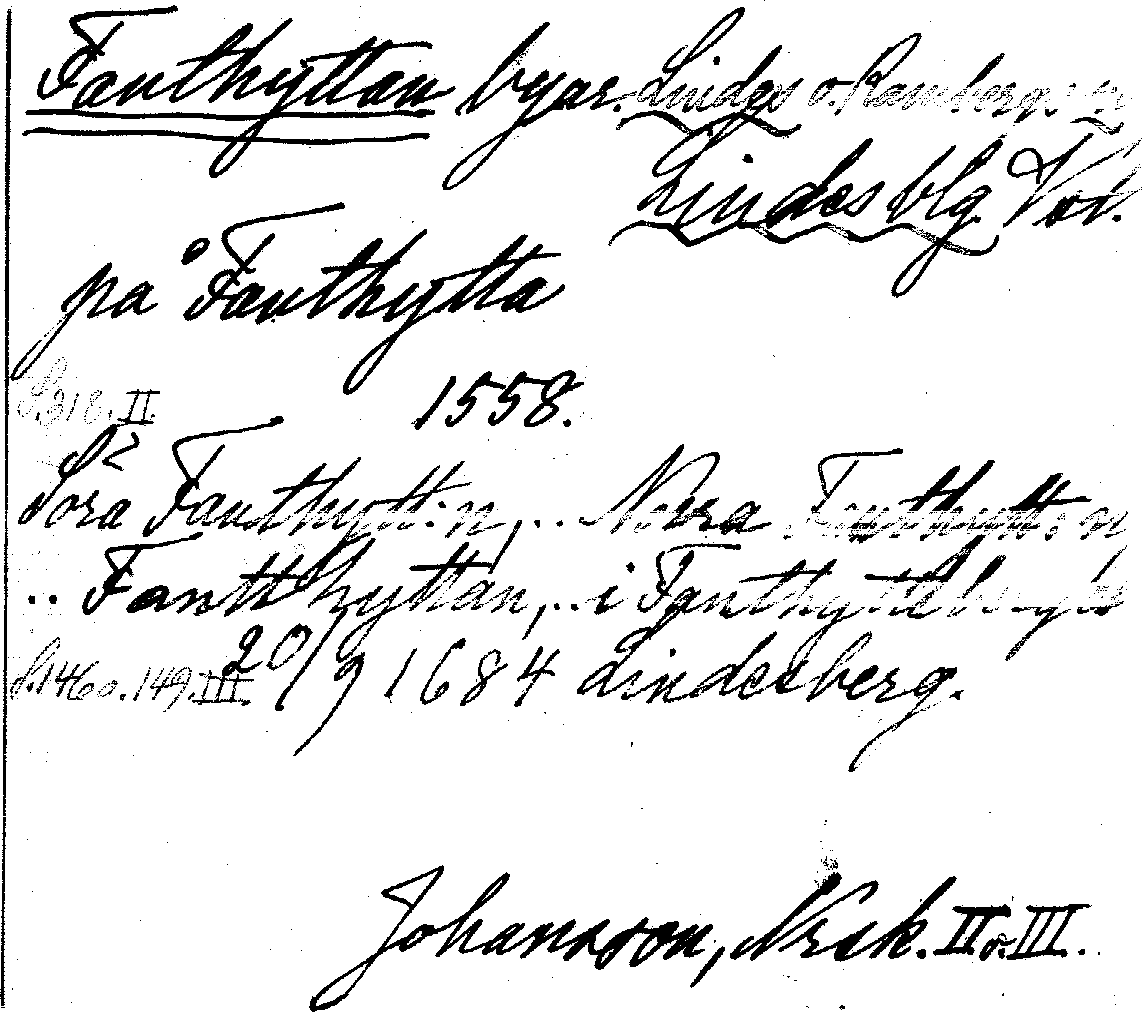 Fanthyttan byar. Lindes o. Ramberg:s n
Lindes blg. Vsl.
på Fanthytta
S. 318. II. 1558.
Söra Fanthytt:n,.. Norra Fanthytt:n
.. Fantthyttan,.. i Fanthytte
S. 146 o. 149. III. 20/9 1684 Lindesberg.
Johansson, Nrsk. II o. III.